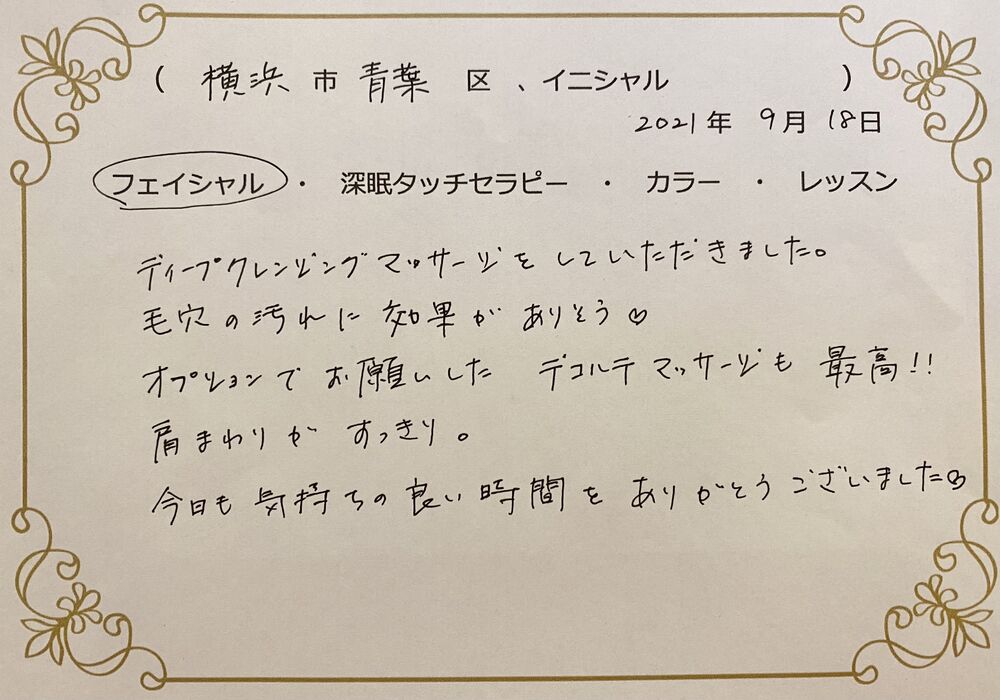 ( 横浜 市 青葉 区 、イニシャル )
2021年 9月 18日
フェイシャル ・ 深眠タッチセラピー ・ カラー ・ レッスン
ディープクレンジングマッサージをしていただきました。
毛穴の汚れに効果がありそう♡
オプションでお願いした デコルテマッサージも最高!!
肩まわりがすっきり。
今日も気持ちの良い時間をありがとうございました♡